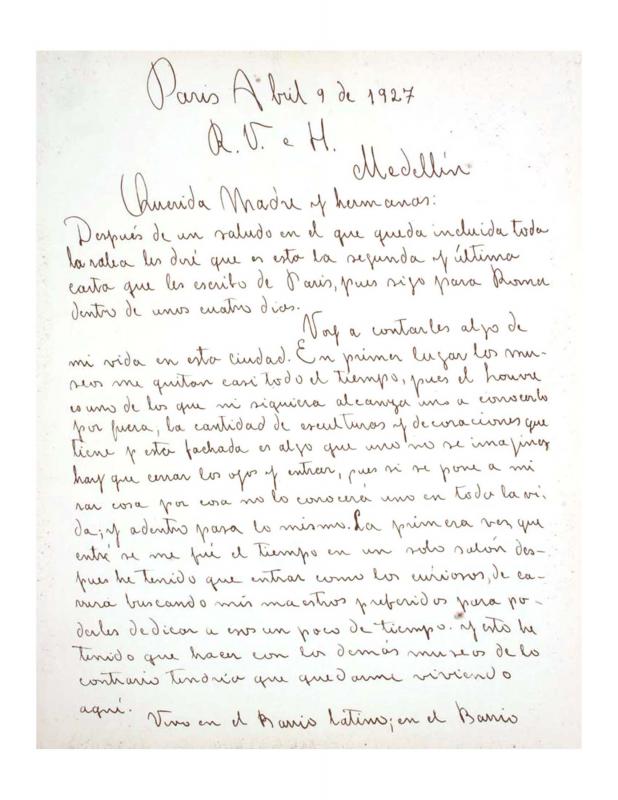 Paris Abril 9 de 1927
R. V. e H.
Medellín
Querida Madre y hermanas:
Después de un saludo en el que queda incluida toda
la ralea les diré que es esta la segunda y última
carta que les escribo de Paris, pues sigo para Roma
dentro de unos cuatro dias.
Voy a contarles algo de
mi vida en esta ciudad. En primer lugar los mu-
seos me quitan casi todo el tiempo, pues el Louvre
es uno de los que ni siquiera alcanza uno a conocerlo
por fuera, la cantidad de esculturas y decoraciones que
tiene esta fachada es algo que uno no se imagina
hay que cerrar los ojos y entrar, pues si se pone a mi
rar cosa por cosa no lo conocerá uno en toda la vi-
da; y adentro pasa lo mismo. La primera vez que
entré se me fué el tiempo en un solo salón des-
pues he tenido que entrar como los curiosos, de ca-
rrera buscando mis maestros preferidos para po-
derles dedicar a esos un poco de tiempo. y esto he
tenido que hacer con los demás museos de lo
contrario tendria que quedarme viviendo
aquí.
Vivo en el Barrio Latino; en el Barrio